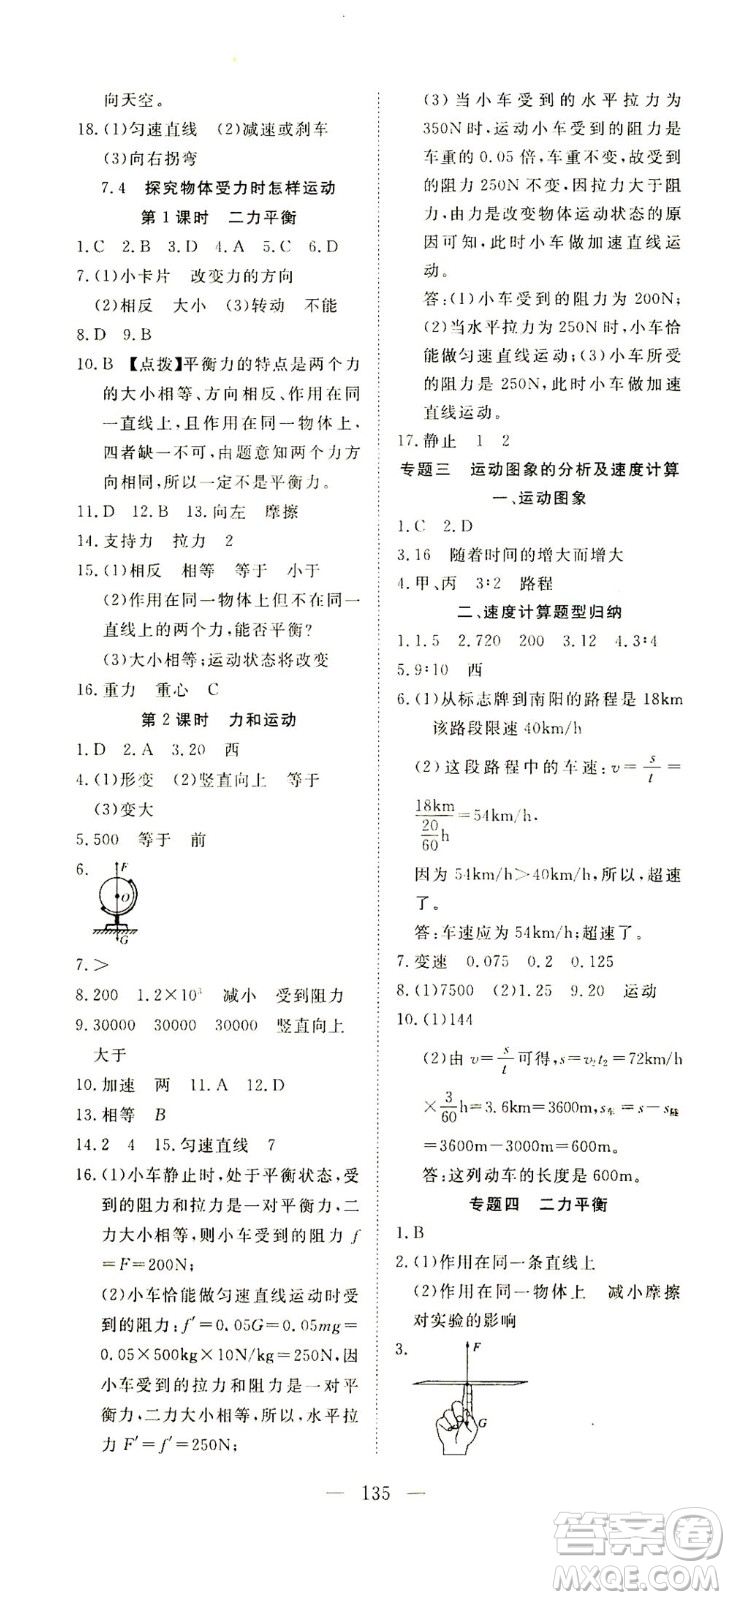 向天空。
18.(1)匀速直线 (2)减速或刹车
(3)向右拐弯
7.4 探究物体受力时怎样运动
第1课时 二力平衡
1.C 2.B 3.D 4.A 5.C 6.D
7.(1)小卡片 改变力的方向
(2)相反 大小 (3)转动 不能
8.D 9.B
10.B 【点拨】平衡力的特点是两个力
的大小相等、方向相反、作用在同
一直线上,且作用在同一物体上,
四者缺一不可,由题意知两个力
方向相同,所以一定不是平衡力。
11.D 12.B 13.向左 摩擦
14.支持力 拉力 2
15.(1)相反 相等 等于 小于
(2)作用在同一物体上但不在同一
直线上的两个力,能否平衡?
(3)大小相等;运动状态将改变
16.重力 重心 C
第2课时 力和运动
1.D 2.A 3.20 西
4.(1)形变 (2)竖直向上 等于
(3)变大
5.500 等于 前
6.
F
O
G
7.>
8.200 1.2×10³ 减小 受到阻力
9.30000 30000 30000 竖直向上
大于
10.加速 两 11.A 12.D
13.相等 B
14.2 4 15.匀速直线 7
16.(1)小车静止时,处于平衡状态,受
到的阻力和拉力是一对平衡力,二
力大小相等,所以小车受到的阻力 f
=F=200N;
(2)小车恰能做匀速直线运动时受到
的阻力:f′=0.05G=0.05mg=
0.05×500kg×10N/kg=250N,因
为小车受到的拉力和阻力是一对平
衡力,二力大小相等,所以,水平拉
力 F′=f′=250N;
(3)当小车受到的水平拉力为
350N时,运动小车受到的阻力是
车重的 0.05 倍,车重不变,故受到
的阻力 250N不变,因拉力大于阻
力,由力是改变物体运动状态的原
因可知,此时小车做加速直线运
动。
答:(1)小车受到的阻力为 200N;
(2)当水平拉力为 250N时,小车恰
能做匀速直线运动;(3)小车所受
的阻力是 250N,此时小车做加速
直线运动。
17.静止 1 2
专题三 运动图象的分析及速度计算
一、运动图象
1.C 2.D
3.16 随着时间的增大而增大
4.甲、丙 3∶2 路程
二、速度计算题型归纳
1.1.5 2.720 200 3.12 4.3∶4
5.9∶10 西
6.(1)从标志牌到南阳的路程是18km
该路段限速40km/h
(2)这段路程中的车速:v=s/t=
18km/(20/60 h)=54km/h.
因为 54km/h>40km/h,所以,超速
了。
答:车速应为54km/h;超速了。
7.变速 0.075 0.2 0.125
8.(1)7500 (2)1.25 9.20 运动
10.(1)144
(2)由 v=s/t 可得,s=v₂t₂=72km/h
×3/60 h=3.6km=3600m,s车-s隧
=3600m-3000m=600m
答:这列动车的长度是600m。
专题四 二力平衡
1.B
2.(1)作用在同一条直线上
(2)作用在同一物体上 减小摩擦
对实验的影响
3.
F
G
— 135 —
答案圈
MXQE.COM